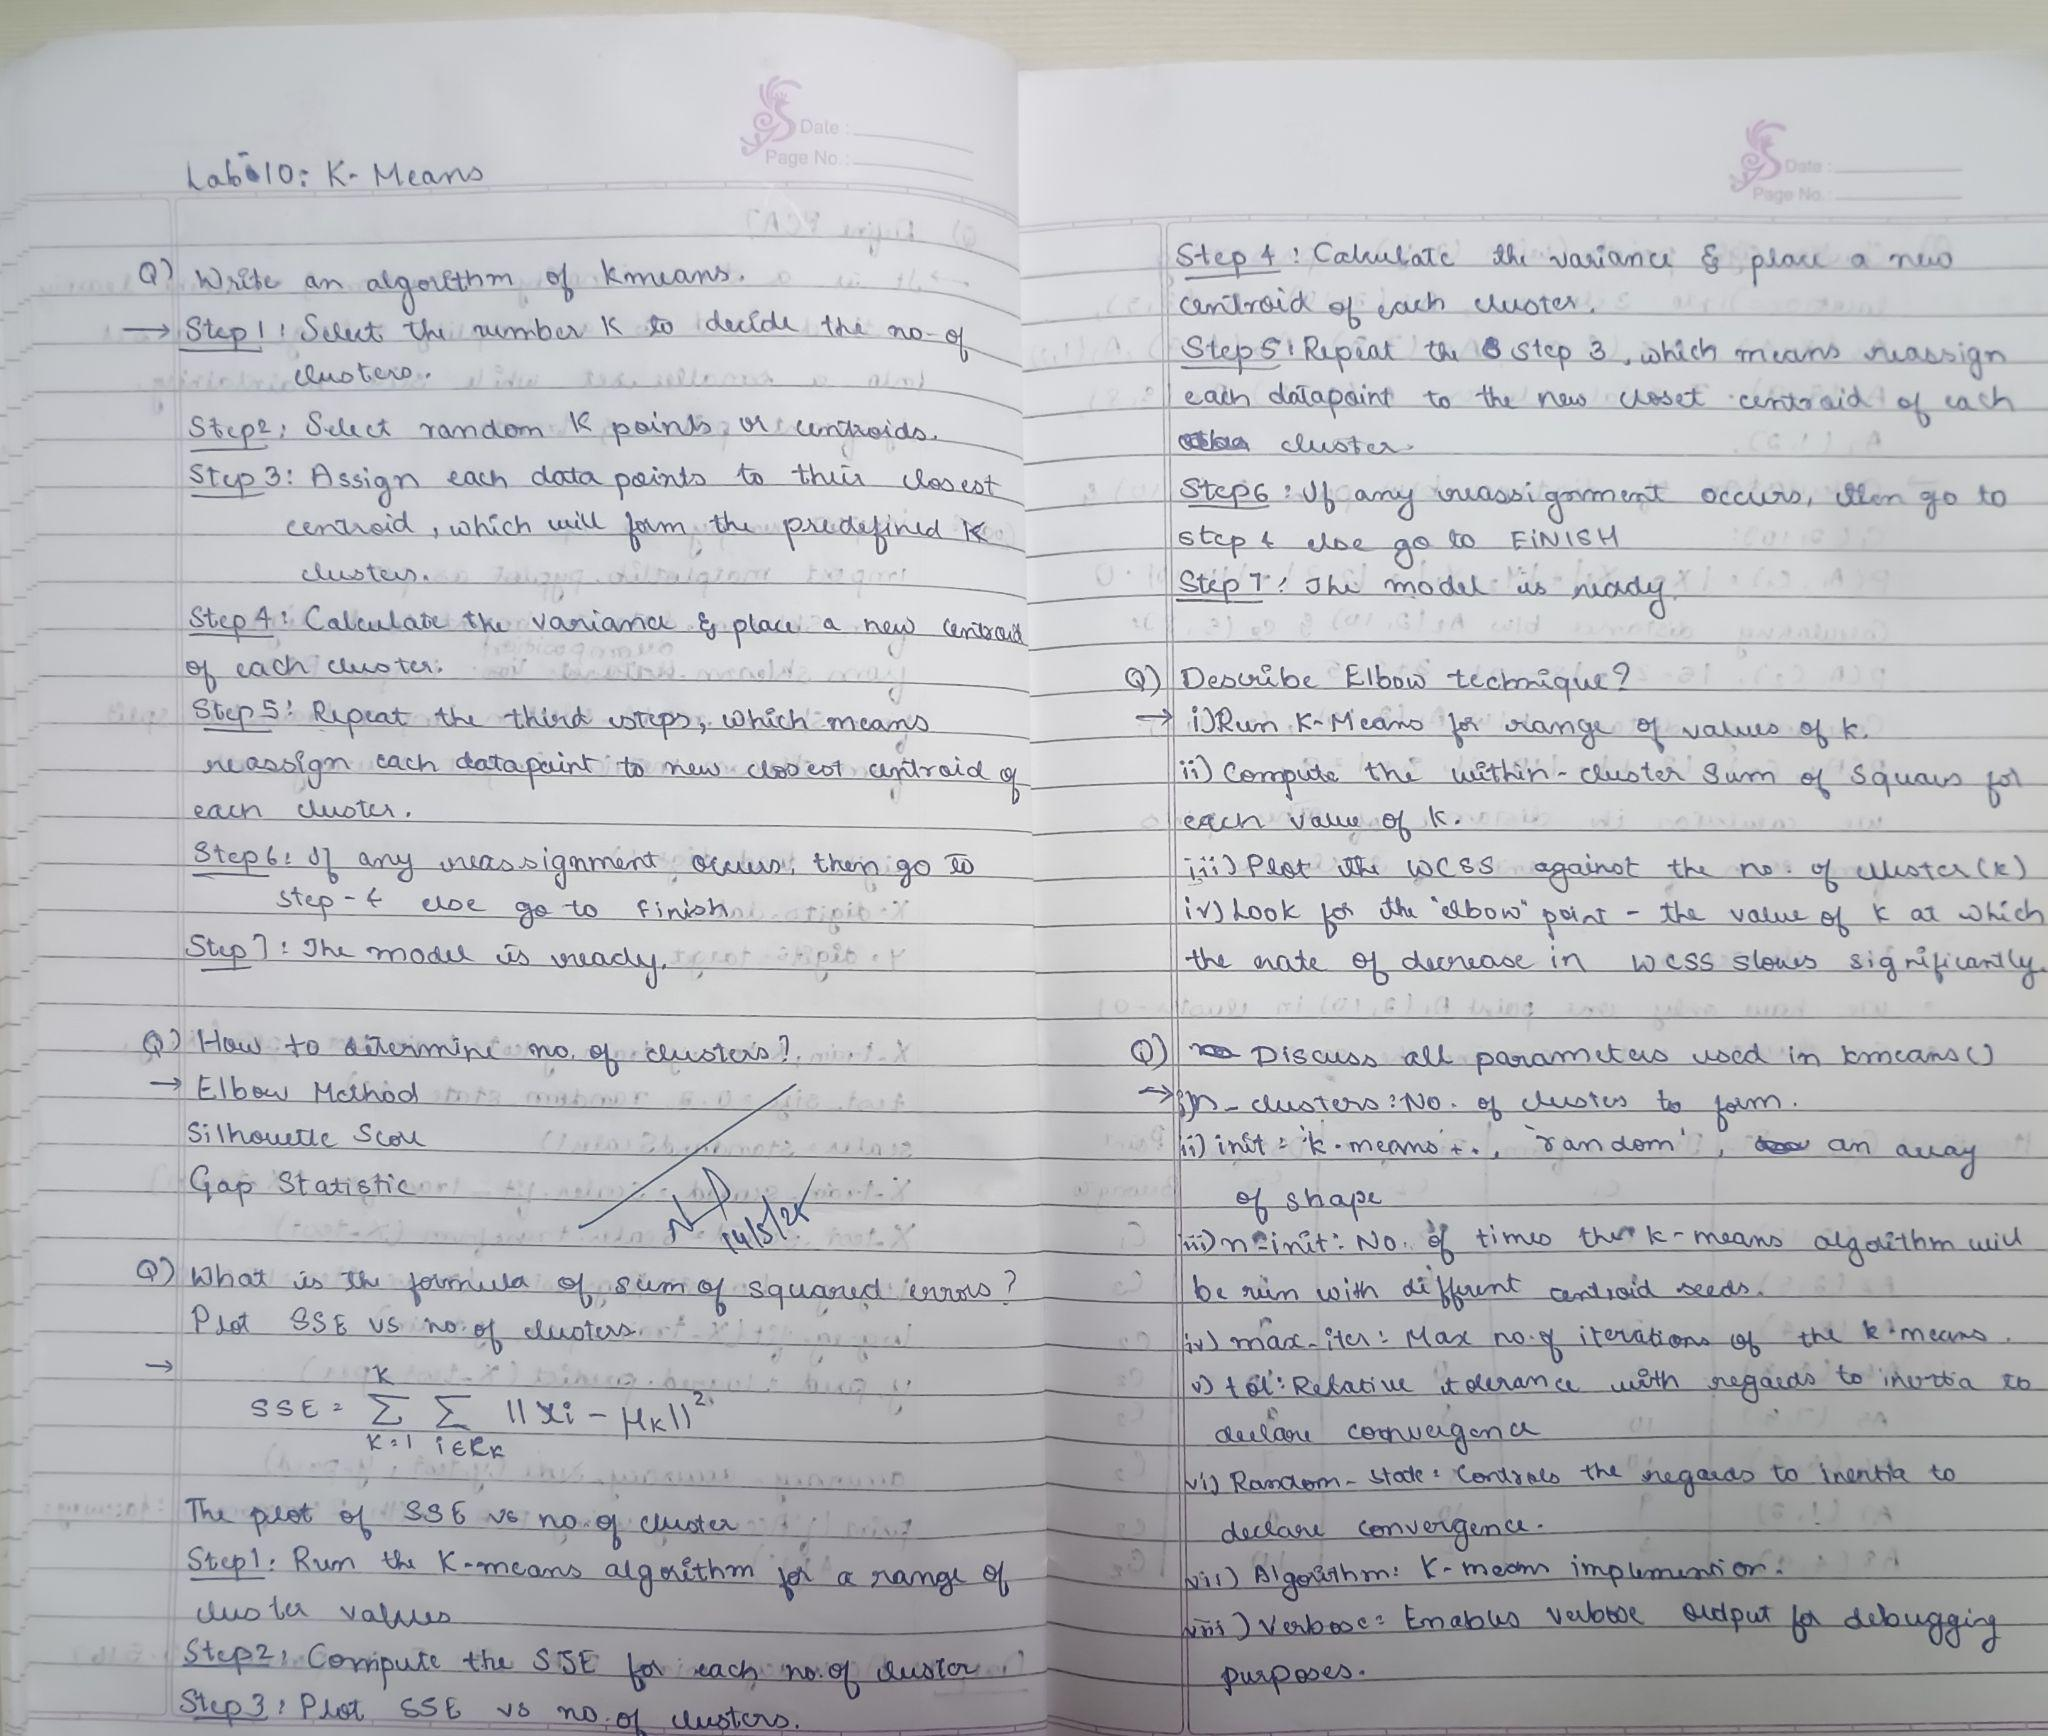 Date :
Page No. :
Lab 10: K- Means
Q) Write an algorithm of kmeans.
→ Step 1: Select the number K to decide the no. of
clusters.
Step2: Select random K points or centroids.
Step 3: Assign each data points to their closest
centroid, which will form the predefined K
clusters.
Step 4: Calculate the variance & place a new centroid
of each cluster.
Step 5: Repeat the third steps, which means
reassign each datapoint to new closest centroid of
each cluster.
Step 6: If any reassignment occurs, then go to
step-4 else go to finish
Step 7: The model is ready.
Q) How to determine no. of clusters?
→ Elbow Method
Silhouette Score
Gap Statistic
Q) What is the formula of sum of squared errors?
Plot SSE vs no. of clusters
→
SSE = K Σ K=1 Σ i∈Rk ||xi - μk||²
The plot of SSE vs no. of cluster
Step1: Run the K-means algorithm for a range of
cluster values
Step2: Compute the SSE for each no. of cluster
Step 3: Plot SSE vs no. of clusters.
Date :
Page No. :
Step 4: Calculate the variance & place a new
centroid of each cluster.
Step 5: Repeat the step 3, which means reassign
each datapoint to the new closet centroid of each
cluster.
Step 6: If any reassignment occurs, then go to
step 4 else go to FINISH
Step 7: The model is ready
Q) Describe Elbow technique?
→ i) Run K-Means for range of values of k.
ii) Compute the within-cluster Sum of Squares for
each value of k.
iii) Plot the WCSS against the no. of cluster (k)
iv) Look for the "elbow" point - the value of k at which
the rate of decrease in WCSS slows significantly.
Q) Discuss all parameters used in kmeans()
→ i) n-clusters: No. of clusters to form.
ii) init = 'k-means++, 'random', an array
of shape
iii) n-init: No. of times the k-means algorithm will
be run with different centroid seeds.
iv) max-iter: Max no. of iterations of the k-means.
v) tol: Relative tolerance with regards to inertia to
declare convergence
vi) Random-state: Controls the regards to inertia to
declare convergence.
vii) Algorithm: K-means implemention.
viii) Verbose: Enables verbose output for debugging
purposes.